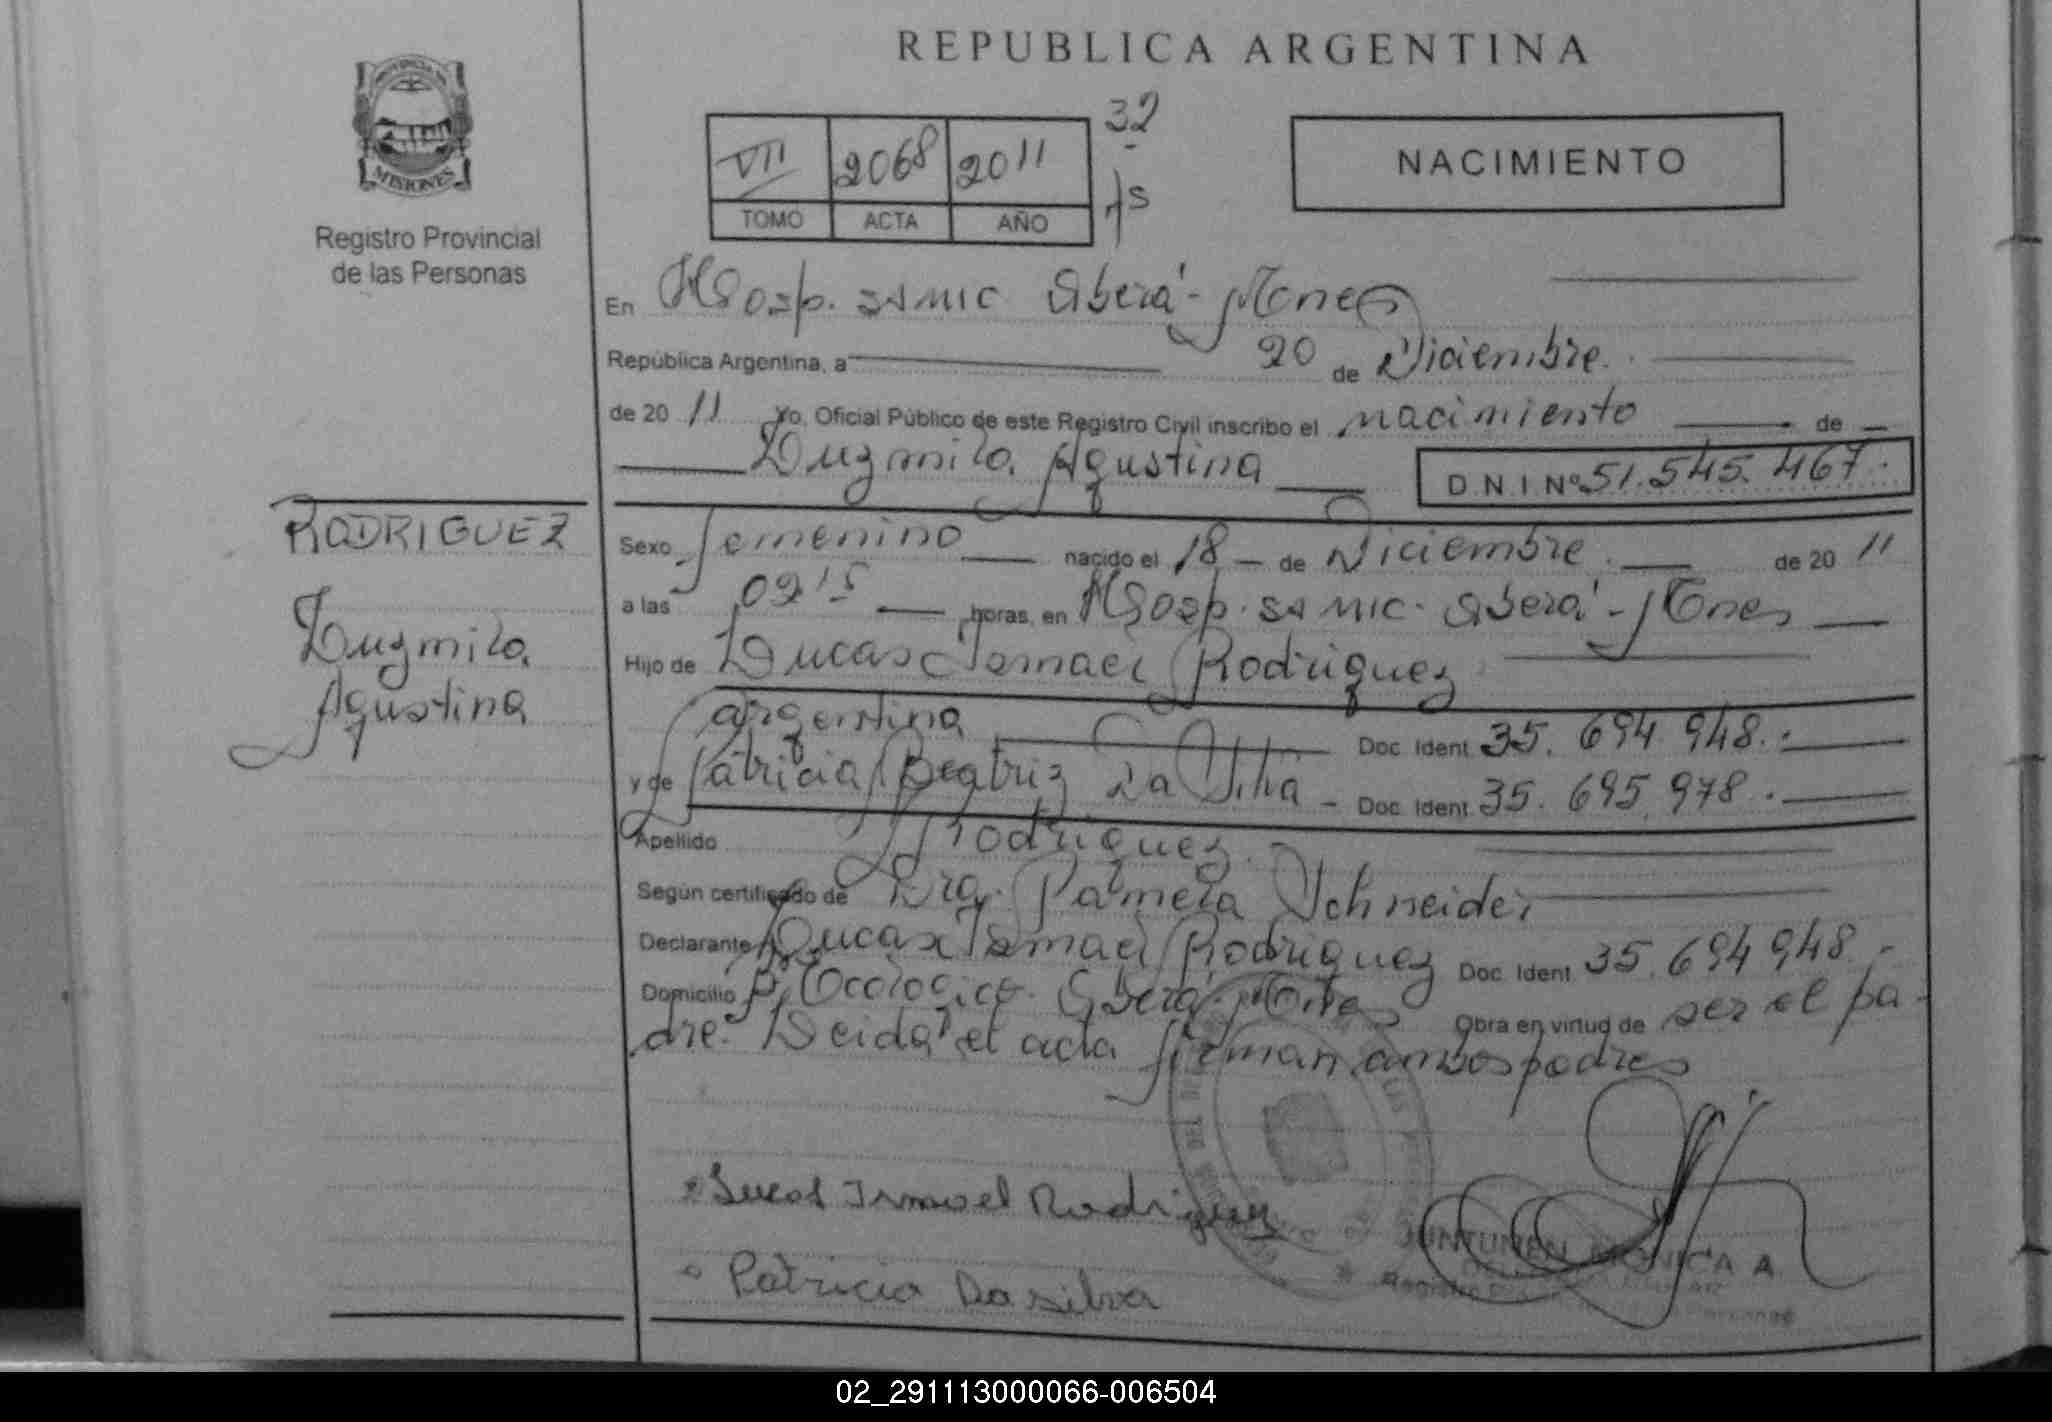 REPUBLICA ARGENTINA
PROVINCIA DE
MISIONES
Registro Provincial
de las Personas
VII 2068 2011
TOMO ACTA AÑO
32
fs
NACIMIENTO
En Hosp. SAMIC Oberá - Mnes
República Argentina, a 20 de Diciembre
de 20 11 Yo, Oficial Público de este Registro Civil inscribo el nacimiento de
Luzmila Agustina D.N.I.Nº 51.545.467.
RODRIGUEZ
Luzmila
Agustina
Sexo femenino nacido el 18 de Diciembre de 20 11
a las 0915 horas, en Hosp. SAMIC. Oberá - Mnes
Hijo de Lucas Ismael Rodriguez
argentina Doc. Ident. 35.694.948.
y de Patricia Beatriz Da Silva - Doc. Ident. 35.695.978.
Apellido Rodriguez
Según certificado de Dra. Pamela Schneider
Declarante Lucas Ismael Rodriguez Doc. Ident. 35.694.948.
Domicilio Bº Ecologico. Oberá Mnes Obra en virtud de ser el pa-
dre. Leida el acta firman ambos padres
Lucas Ismael Rodriguez
Patricia Da silva
JUNTUNEN MONICA A
02_291113000066-006504